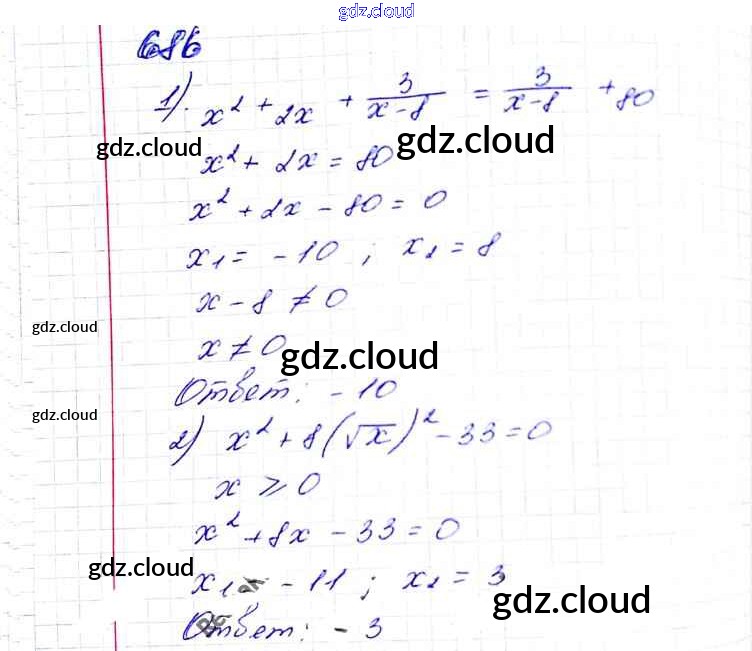 gdz.cloud
686
1). x² + 2x + 3/(x-8) = 3/(x-8) + 80
gdz.cloud gdz.cloud
x² + 2x = 80
x² + 2x - 80 = 0
x₁ = -10 ; x₁ = 8
x - 8 ≠ 0
gdz.cloud
x ≠ 0
gdz.cloud
Ответ: -10
gdz.cloud
2) x² + 8(√x)² - 33 = 0
x ⩾ 0
x² + 8x - 33 = 0
gdz.cloud
x₁ = -11 ; x₁ = 3
gdz.cloud
Ответ: - 3